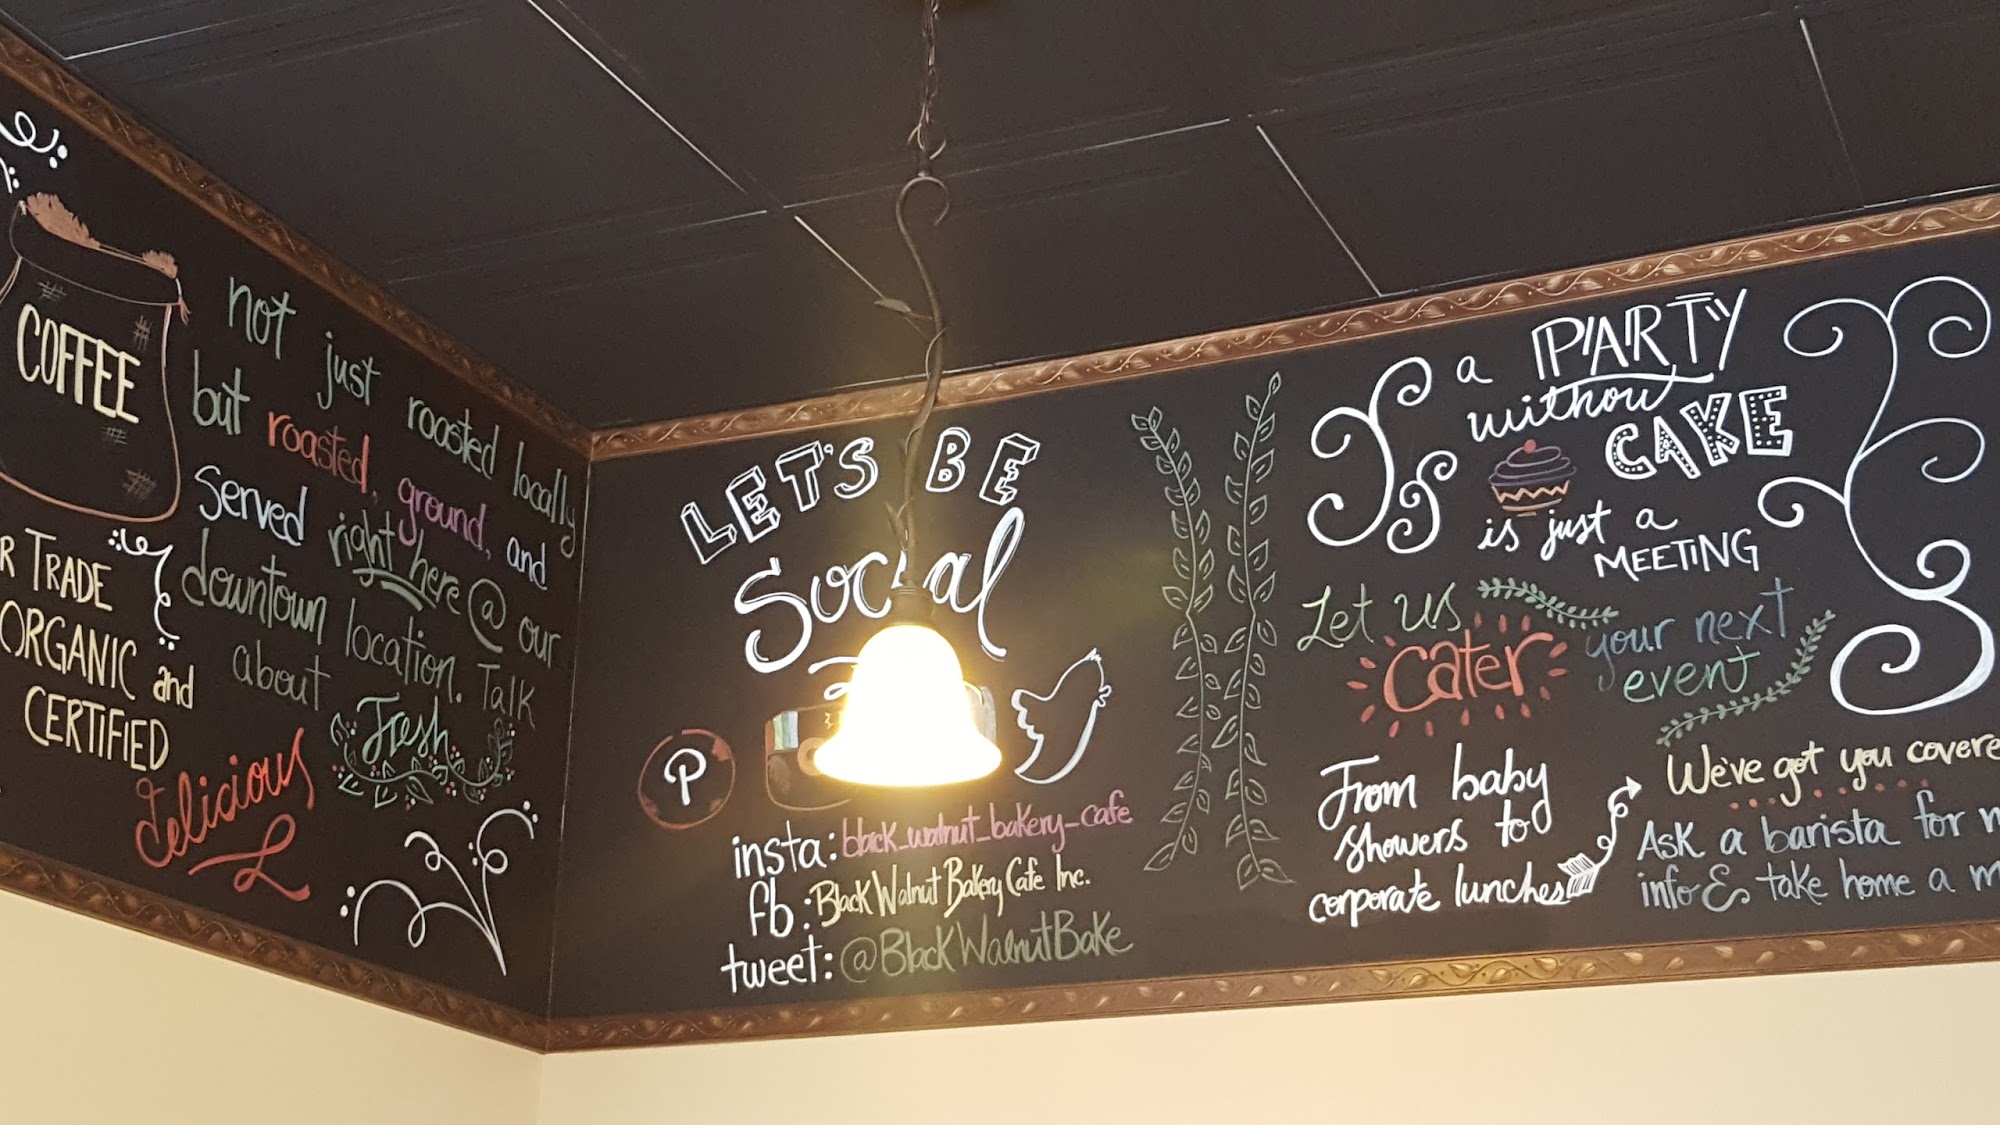 COFFEE
not just roasted locally
but roasted, ground, and
served right here @ our
downtown location. Talk
about Fresh
R TRADE
ORGANIC and
CERTIFIED
delicious
LET'S BE
Social
insta: black_walnut_bakery_cafe
fb: Black Walnut Bakery Cafe Inc.
tweet: @BlackWalnutBake
a PARTY
without
CAKE
is just a
MEETING
Let us
cater
your next
event
From baby
showers to
corporate lunches
We've got you covere
Ask a barista for m
info & take home a m